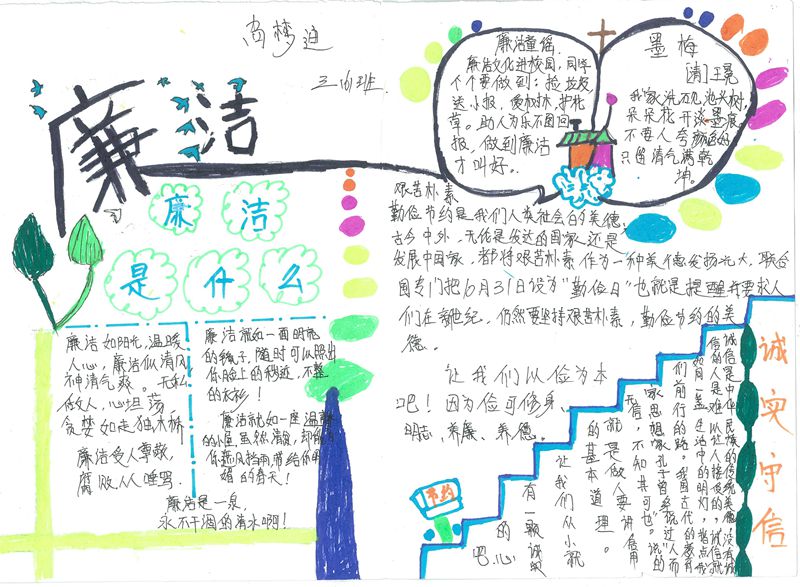 廉洁
三(6)班
廉洁
是什么
廉洁如阳光,温暖
人心,廉洁似清风
神清气爽。无私
做人,心坦荡
贪婪如走独木桥
廉洁受人尊敬,
腐败从人唾骂
廉洁就如一面时亮
的镜子,随时可以照出
你脸上的秽迹,不整
的衣衫!
廉洁就如一座温馨
的小屋
你遮风挡雨,带给你
的春天!
廉洁是一泉
永不干涸的清水啊!
廉洁童谣
廉洁文化进校园,同学
个个要做到:捡垃圾
送小报,爱树木,护花
草。助人为乐不图回
报,做到廉洁
才叫好。
墨梅
[清]王冕
我家洗砚池头树,
朵朵花开淡墨痕
不要人夸颜色好
只留清气满乾
坤。
艰苦朴素
勤俭节约是我们人类社会的美德,
古今中外,无论是发达的国家还是
发展中国家,都将艰苦朴素作为一种美德发扬光大,联合
国专门把10月31日设为“勤俭日”也就是提醒并要求人
们在新世纪,仍然要坚持艰苦朴素,勤俭节约的美
德。
让我们以俭为本
吧!因为俭可修身、
明志、养廉、养德。
节约
诚实守信
们前行的路。我国古代
家思想家孔子曾经说过“人而
无信,不知其可也”说的
就是做人要讲信用
的基本道理。
让我们从小就
有一颗诚实
的心吧